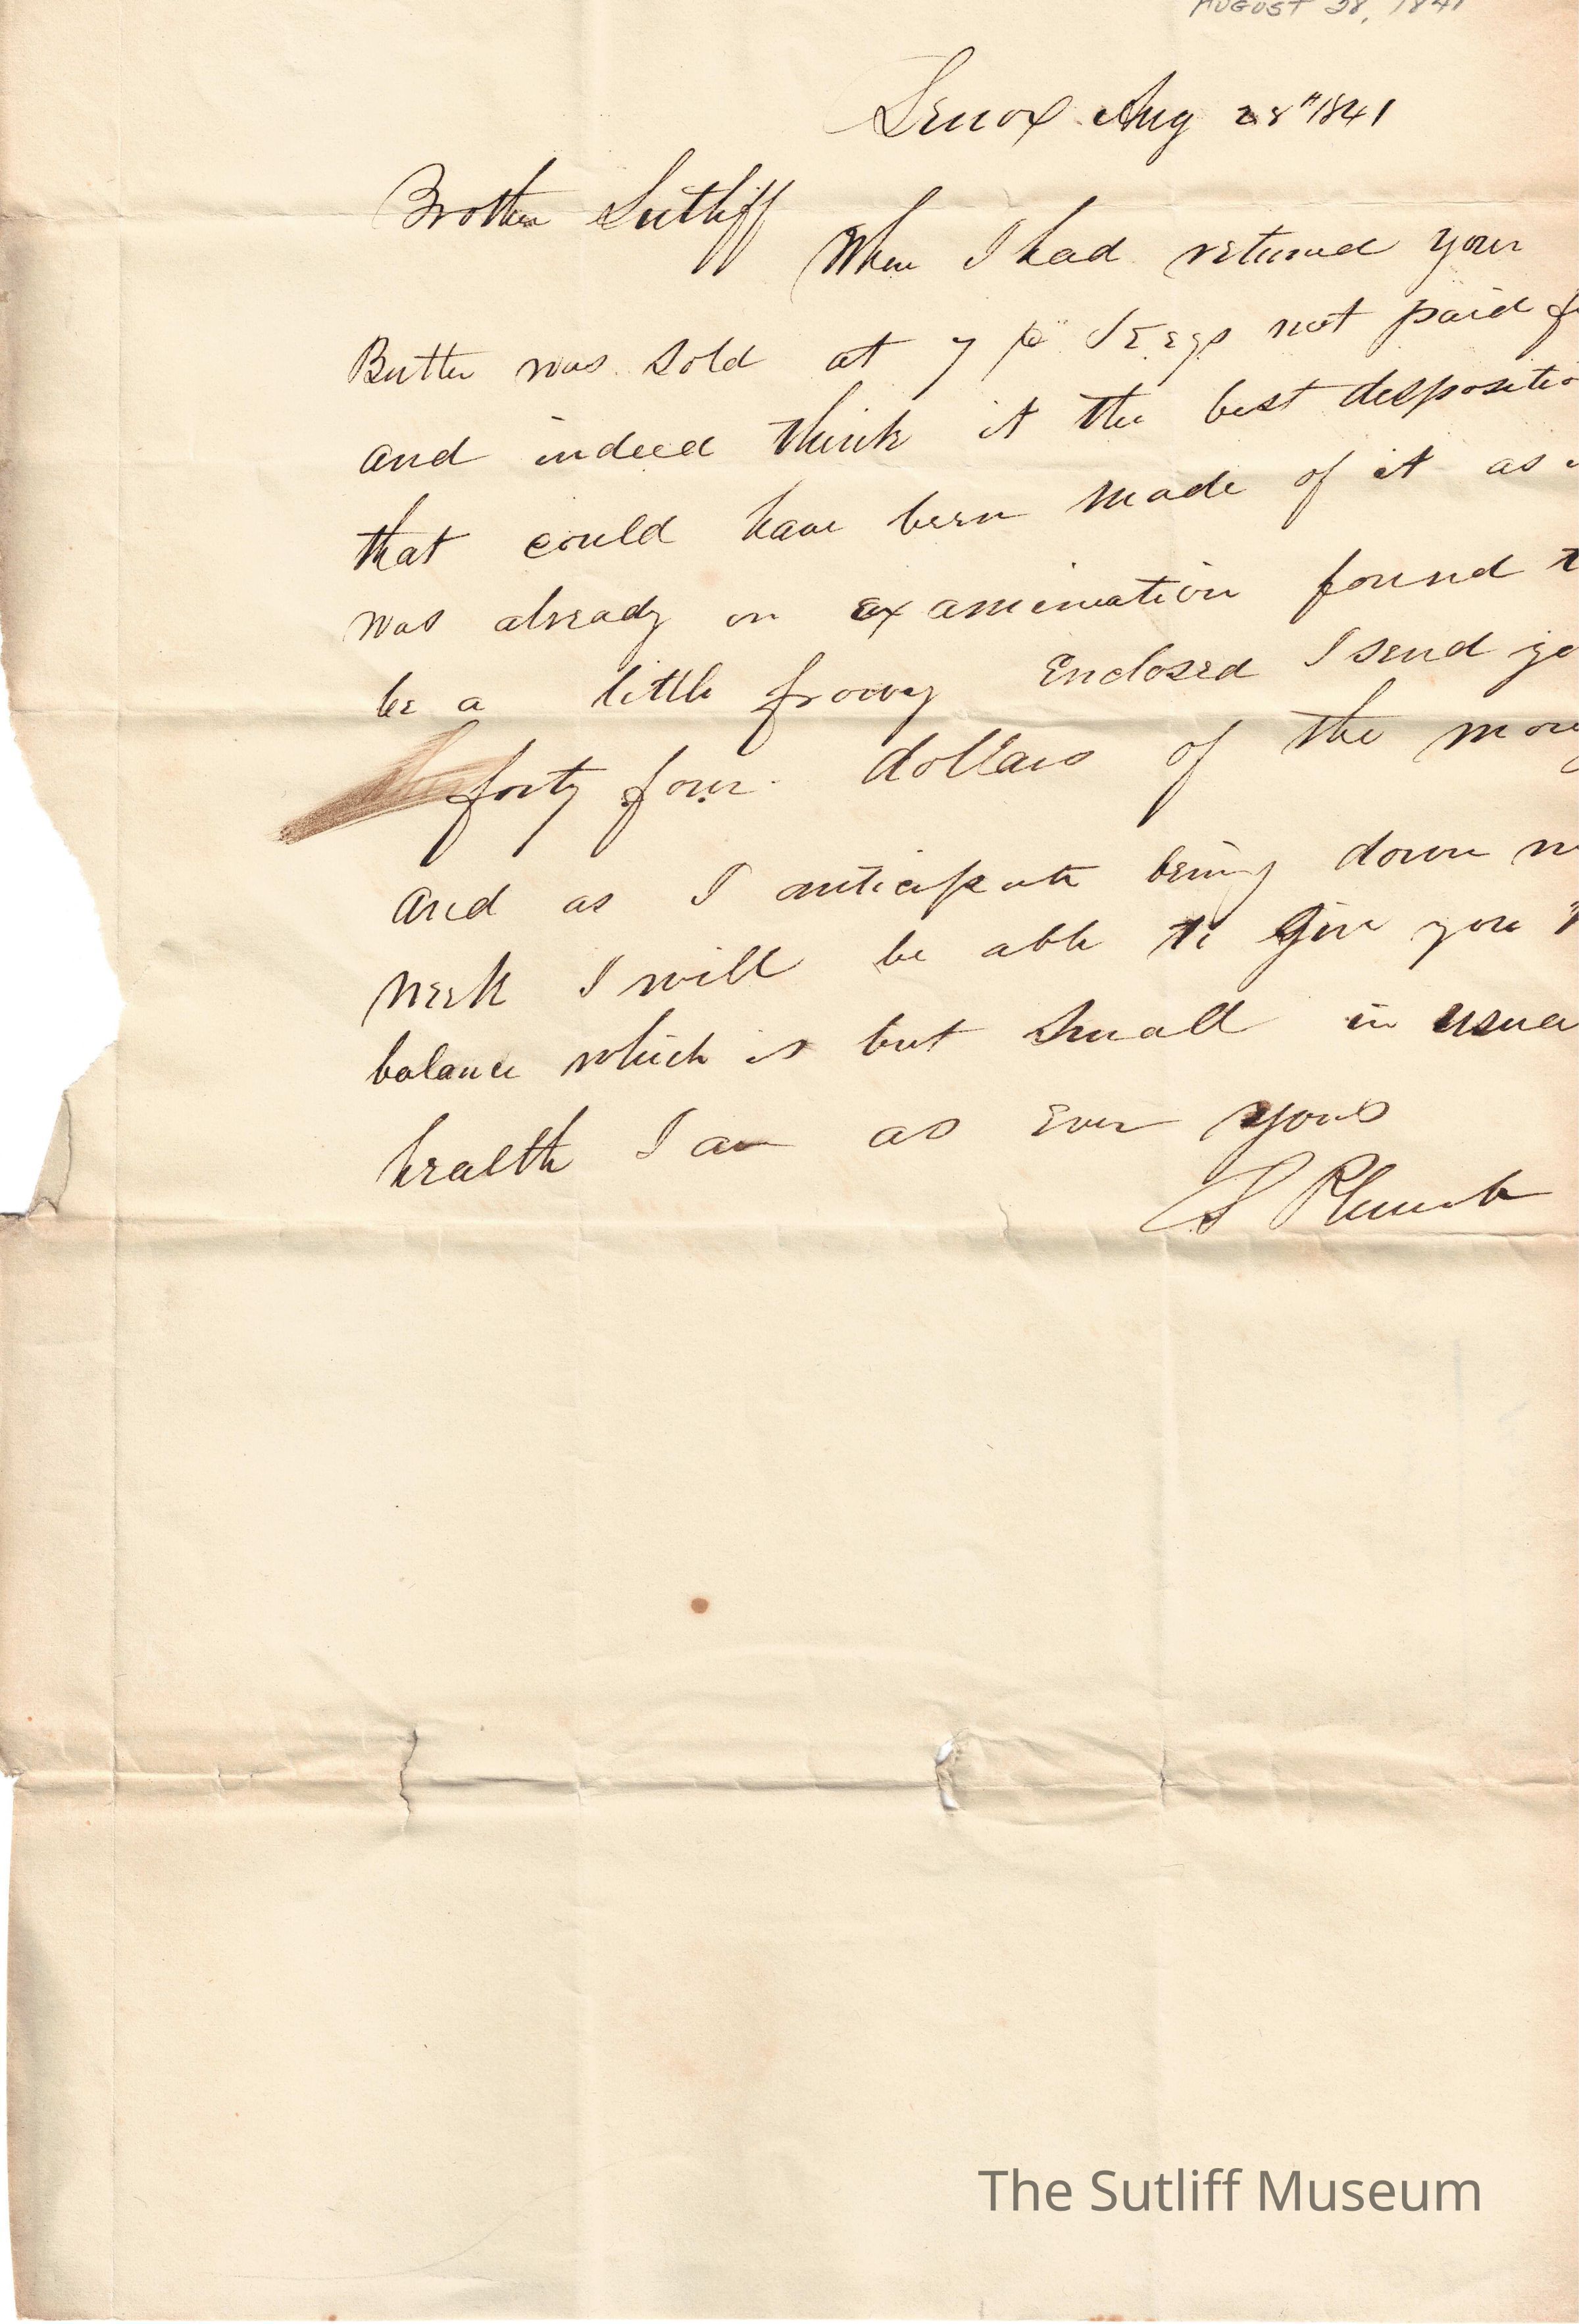 AUGUST 28, 1841
Lenox Aug 28" 1841
Brother Sutliff
When I had returned your
Butter was sold at 7 not paid
and indeed think it the best dispositio
that could have been made of it as
was already on examination found t
be a little frowy Enclosed I send yo
forty four dollars of the mon
and as I anticipate being down n
week I will be able to give you
balance which is but small in usua
health I am as Ever yours
S Plumb
The Sutliff Museum